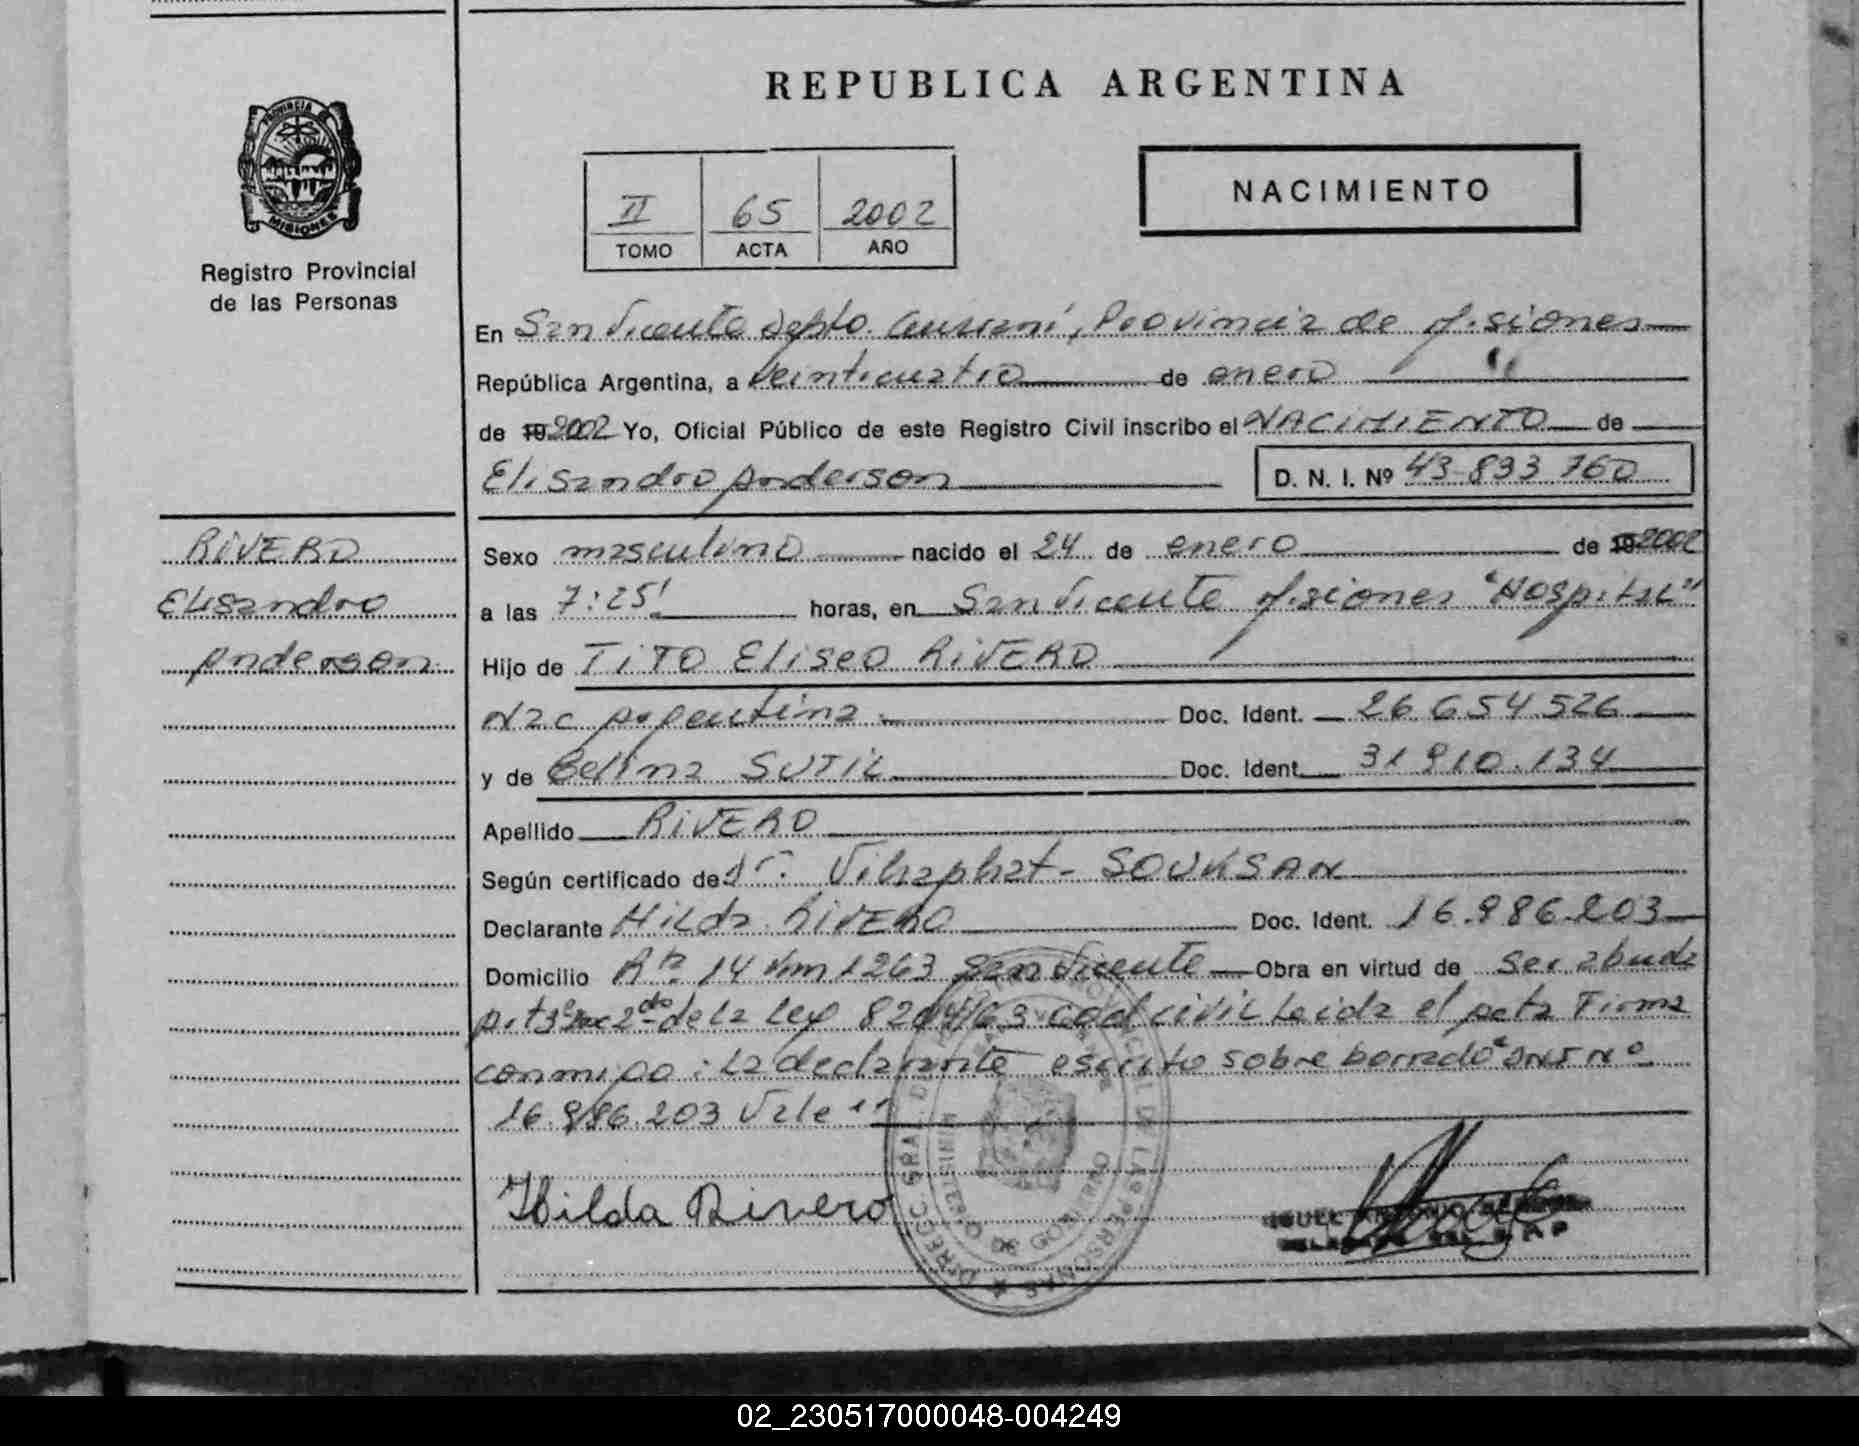 REPUBLICA ARGENTINA
PROVINCIA
MISIONES
Registro Provincial
de las Personas
II 65 2002
TOMO ACTA AÑO
NACIMIENTO
En San Vicente Depto. Guaraní, Provincia de Misiones
República Argentina, a veinticuatro de enero
de 19 2002 Yo, Oficial Público de este Registro Civil inscribo el NACIMIENTO de
Elisandro Anderson D. N. I. Nº 43-833 760
RIVERO
Elisandro
Anderson
Sexo masculino nacido el 24 de enero de 19 2002
a las 7:25' horas, en San Vicente Misiones "Hospital"
Hijo de TITO Eliseo RIVERO
Nac Argentina Doc. Ident. 26 654 526
y de Celina SUTIL Doc. Ident. 31 910.134
Apellido RIVERO
Según certificado de Dr. Vilaphat- SOUKSAN
Declarante Hilda RIVERO Doc. Ident. 16.986.203
Domicilio Rta. 14 Km 1263 San Vicente Obra en virtud de Ser abuela
2do de la Ley 8204/63 cod civil Leida el Acta Firma
conmigo: La declarante escrito sobre borrado "DNI Nº
16.986.203 Vale"
Hilda Rivero
02_230517000048-004249